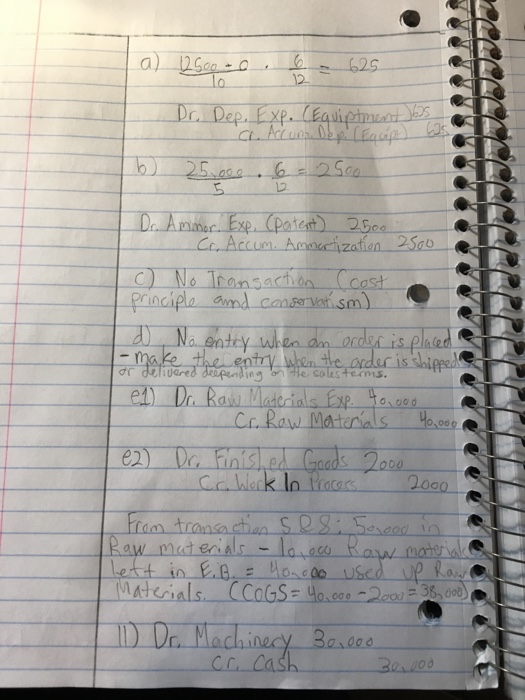 a) 12500 - 0 / 10 · 6/12 = 625
Dr. Dep. Exp. (Equiptment) 625
Cr. Accum. Dep. (Equip) 625
b) 25,000 / 5 · 6/12 = 2500
Dr. Ammor. Exp. (patent) 2500
Cr. Accum. Ammortization 2500
c) No Transaction (cost
principle amd conservatism)
d) No entry when an order is placed
- make the entry when the order is shipped
or delivered deepending on the sales terms.
e1) Dr. Raw Materials Exp. 40,000
Cr. Raw Materials 40,000
e2) Dr. Finished Goods 2000
Cr. Work In Process 2000
From transaction 5 & 8: 50,000 in
Raw materials - 10,000 Raw materials
left in E.B. = 40,000 used up Raw
Materials. (COGS = 40,000 - 2000 = 38,000)
11) Dr. Machinery 30,000
Cr. Cash 30,000